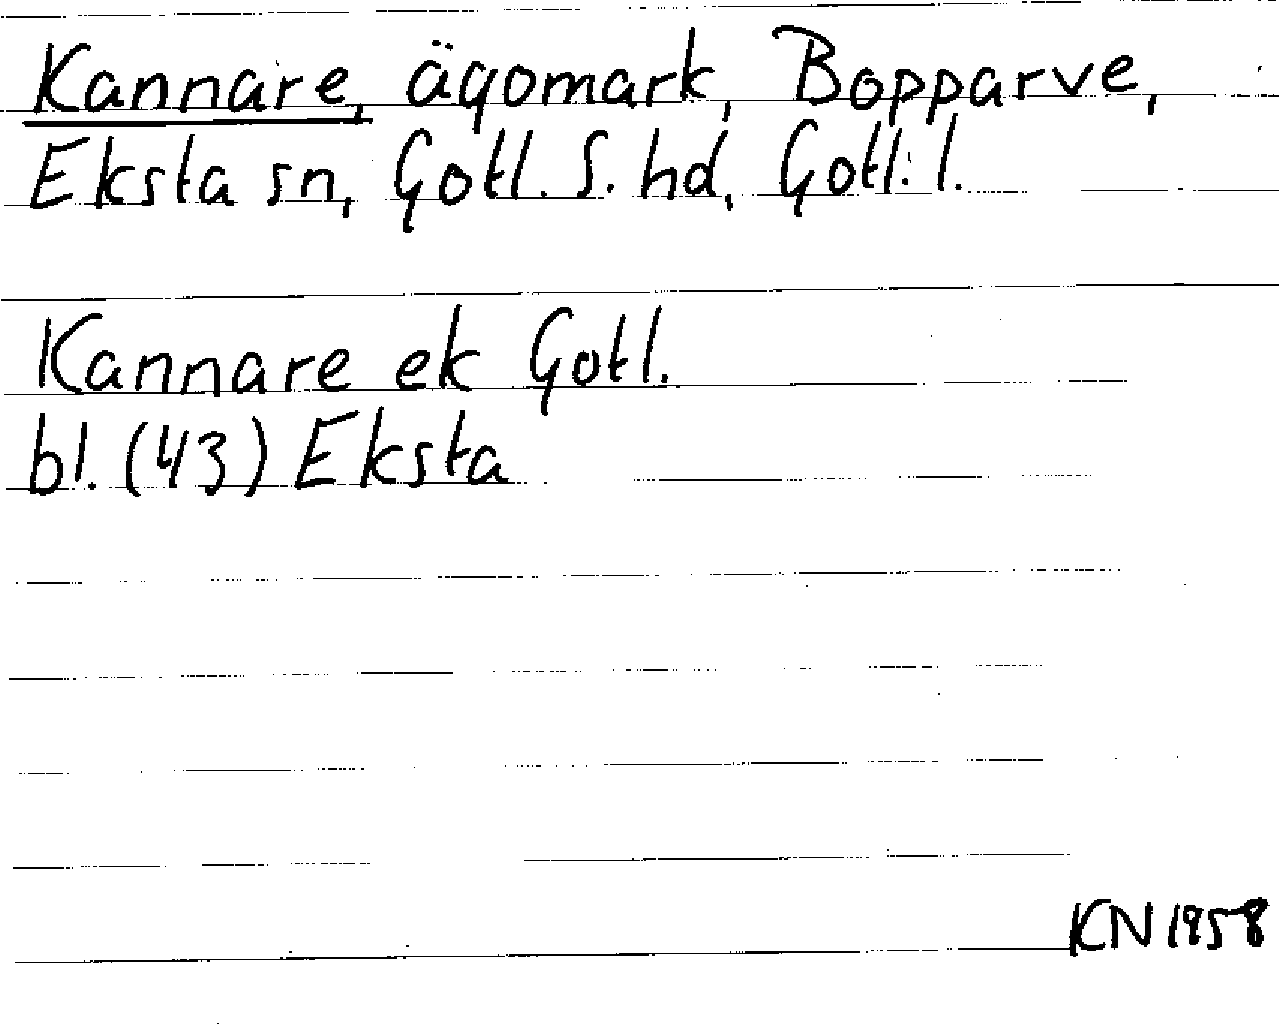 Kannare, ägomark, Bopparve,
Eksta sn, Gotl. S. hd, Gotl. l.
Kannare ek Gotl.
bl. (43) Eksta
KN 1958